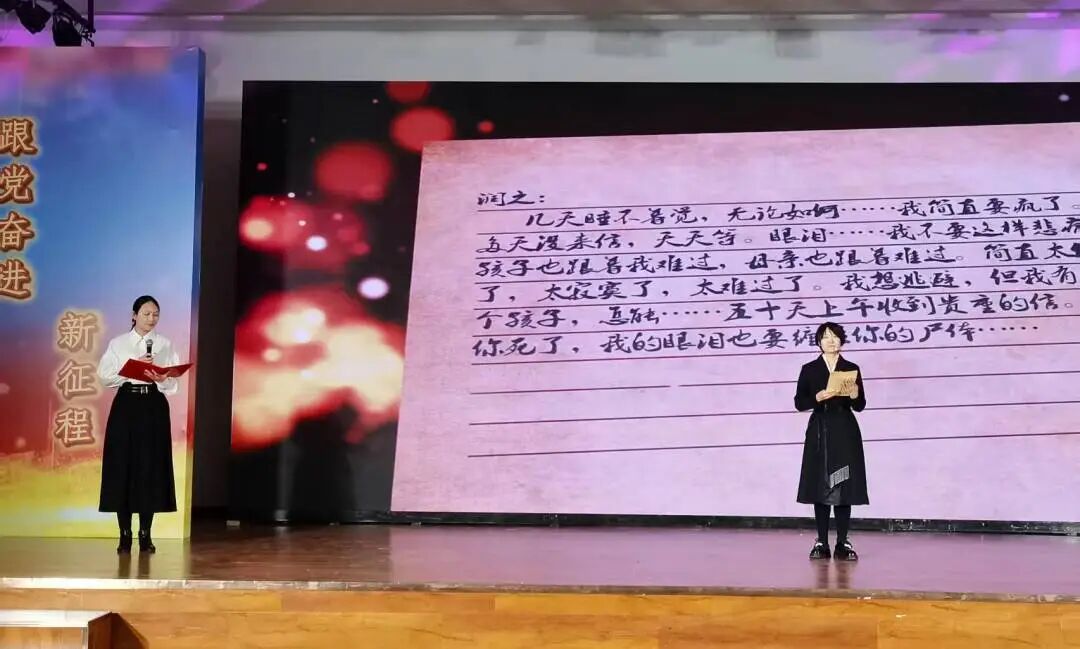 跟党奋进
新征程
润之：
几天睡不着觉，无论如何……我简直要疯了。
多天没来信，天天等。眼泪……我不要这样悲痛
孩子也跟着我难过，母亲也跟着难过。简直太
了，太寂寞了，太难过了。我想逃避，但我有
个孩子，怎能……五十天上午收到贵重的信。
你死了，我的眼泪也要缠 你的尸体……